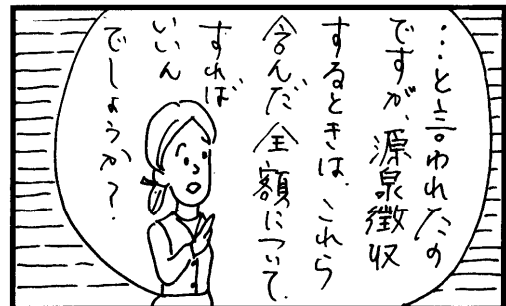 …と言われたの
ですが、源泉徴収
するときは、これら
含んだ全額について
すれば
いいん
でしょうか？